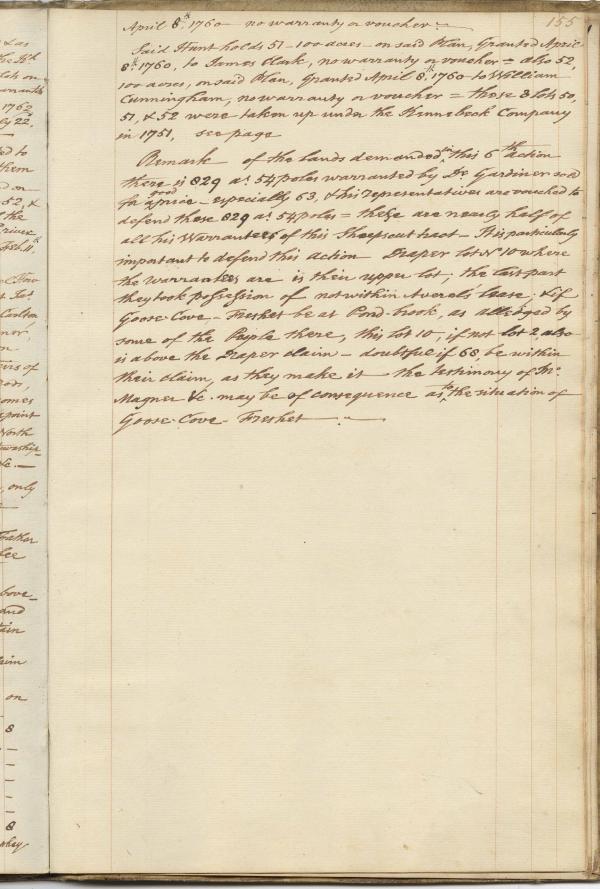 155
April 8th. 1760 - no warranty or voucher -
Said Hunt holds 51 - 100 acres - on said Plan, Granted April
8th. 1760, to James Clark, no warranty or voucher = also 52,
100 acres, on said Plan, Granted April 8th. 1760 to William
Cunningham, no warranty or voucher = these 3 lots 50,
51, & 52 were taken up under the Kennebeck Company
in 1751, see page
Remark of the lands demanded in this 6th action
there is 829 as. 54 poles warranted by Dr. Gardiner and
for a good price - especially 63, & his representatives are vouched to
defend these 829 as. 54 poles = these are nearly half of
all his Warrantees of this Sheepscut tract - It is particularly
important to defend this action Draper lot No. 10 where
the warrantees are is their upper lot; the last part
they took possession of not within Averals' lease; & if
Goose-Cove-Freshet be at Pond-brook, as alledged by
some of the People there, this lot 10, if not lot 2, also
is above the Draper claim - doubtful if 68, be within
their claim, as they make it the testimony of Jno.
Magner &c. may be of consequence as to the situation of
Goose-Cove-Freshet
& as
lots on
1762
ly 22,
ed to
them
d on
52, &
f the
Feb. 11.
Carlton
on
irs of
omes
point
North
&c. -
, only
Father
bove-
and
tain
laim
on
8
8